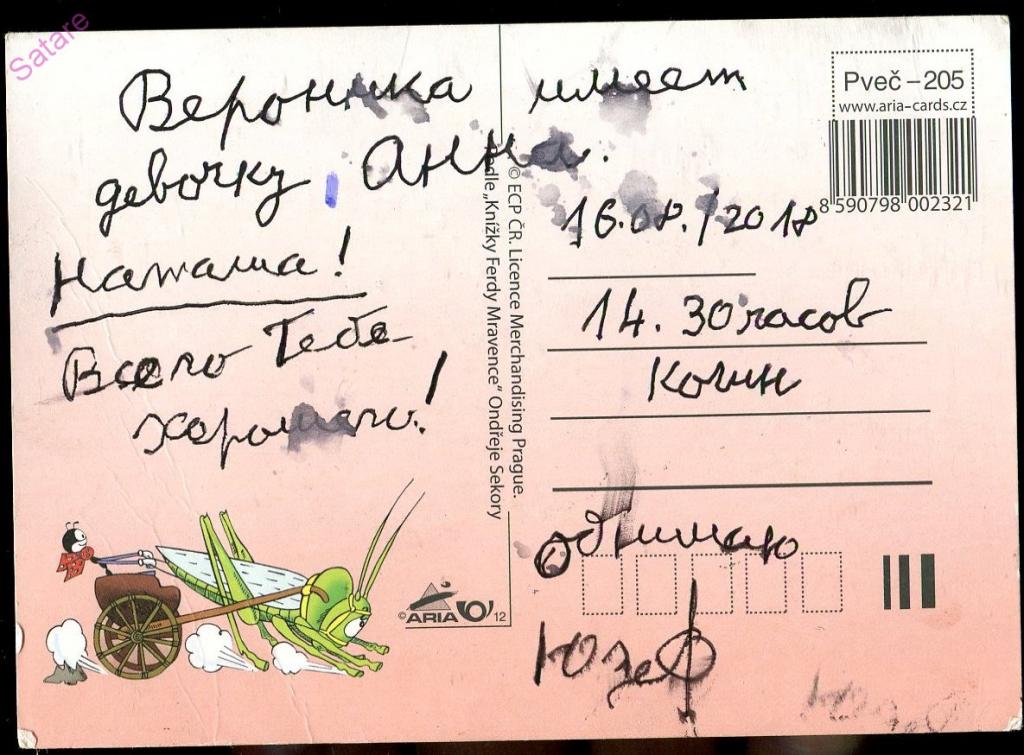 Satare
Вероника имеет
девочку, Анна.
Наташа!
Всего Тебе
хорошего!
16.08./2018
14.30 часов
обнимаю
Юзеф
Pveč – 205
www.aria-cards.cz
8 590798 002321
© ECP ČR. Licence Merchandising Prague.
dle „Knížky Ferdy Mravence“ Ondřeje Sekory
© ARIA 12